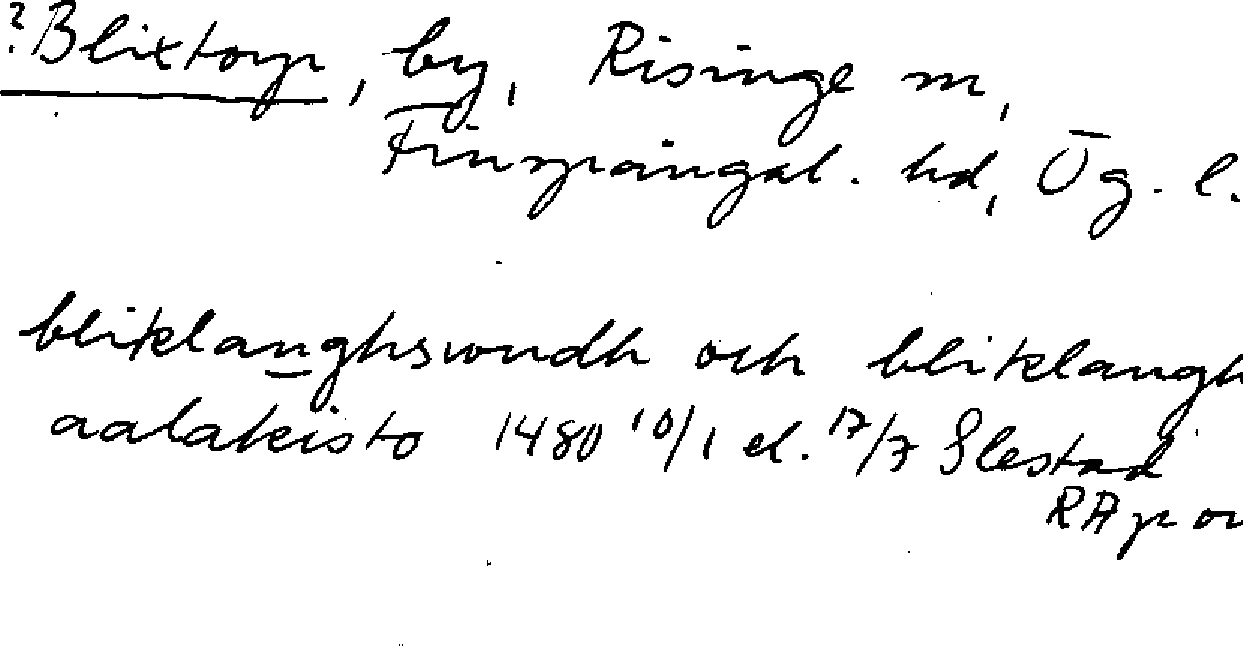 ?Blixtorp, by, Risinge sn,
Finspångal. hd, Ög. l.
bliklanghswudh och bliklangh
aalakisto 1480 10/1 el. 17/7 Slestad
RA p or